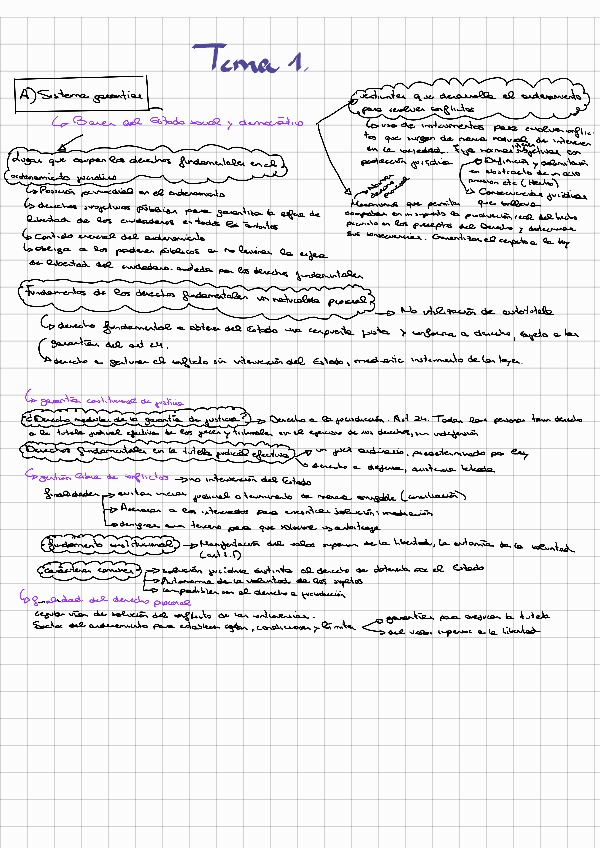 Tema 1.
A) Sistema garantías
↳ Bases del Estado social y democrático
Lugar que ocupan los derechos fundamentales en el
ordenamiento jurídico
↳ Posición primordial en el ordenamiento
↳ derechos subjetivos públicos para garantizar la esfera de
libertad de los ciudadanos en todos los ámbitos
↳ Contenido esencial del ordenamiento
↳ obliga a los poderes públicos a no lesionar la esfera
de libertad del ciudadano por los derechos fundamentales
que desarrolla el ordenamiento
para resolver conflictos
↳ uso de instrumentos para resolver conflic-
tos que surgen de manera natural
en la sociedad. Fija normas objetivas con
protección jurídica
↳ Definición y delimitación
en abstracto de un acto
omisión etc (Hecho)
↳ Consecuencias jurídicas
que conlleva
Mecanismos que permiten
comprobar en un supuesto la producción real del hecho
previsto en los preceptos del Derecho y determinar
sus consecuencias. Garantizan el respeto a la ley
Fundamentos de los derechos fundamentales de naturaleza procesal
→ No utilización de autotutela
↳ derecho fundamental a obtener del Estado una respuesta justa y conforme a derecho, sujeto a las
garantías del art 24.
↳ derecho a gestionar el conflicto sin intervención del Estado, mediante instrumento de las leyes.
↳ garantía constitucional de justicia
¿Derecho de la garantía de justicia? → Derecho a la jurisdicción. Art 24. Todas las personas tienen derecho
a la tutela judicial efectiva de los jueces y tribunales en el ejercicio de sus derechos, sin indefensión
Derechos fundamentales en la tutela judicial efectiva → un juez ordinario, predeterminado por ley
→ derecho a defensa, asistencia letrada
↳ gestión libre de conflictos → no intervención del Estado
finalidades → evitar iniciar proceso o terminarlo de manera amigable (conciliación)
→ Acercar a los interesados para encontrar solución: mediación
→ designar a un tercero para que solucione es arbitraje
fundamento constitucional → Manifestación del valor superior de la libertad, la autonomía de la voluntad
(art 1.1)
Caracteres comunes → solución jurídica distinta al derecho de obtenerla por el Estado
→ Autonomía de la voluntad de los sujetos
→ compatibles con el derecho a jurisdicción
↳ finalidad del derecho procesal
regular vías de solución del conflicto de las controversias.
Sector del ordenamiento para establecer reglas, condiciones y límites → garantías para asegurar la tutela
→ del valor superior a la libertad